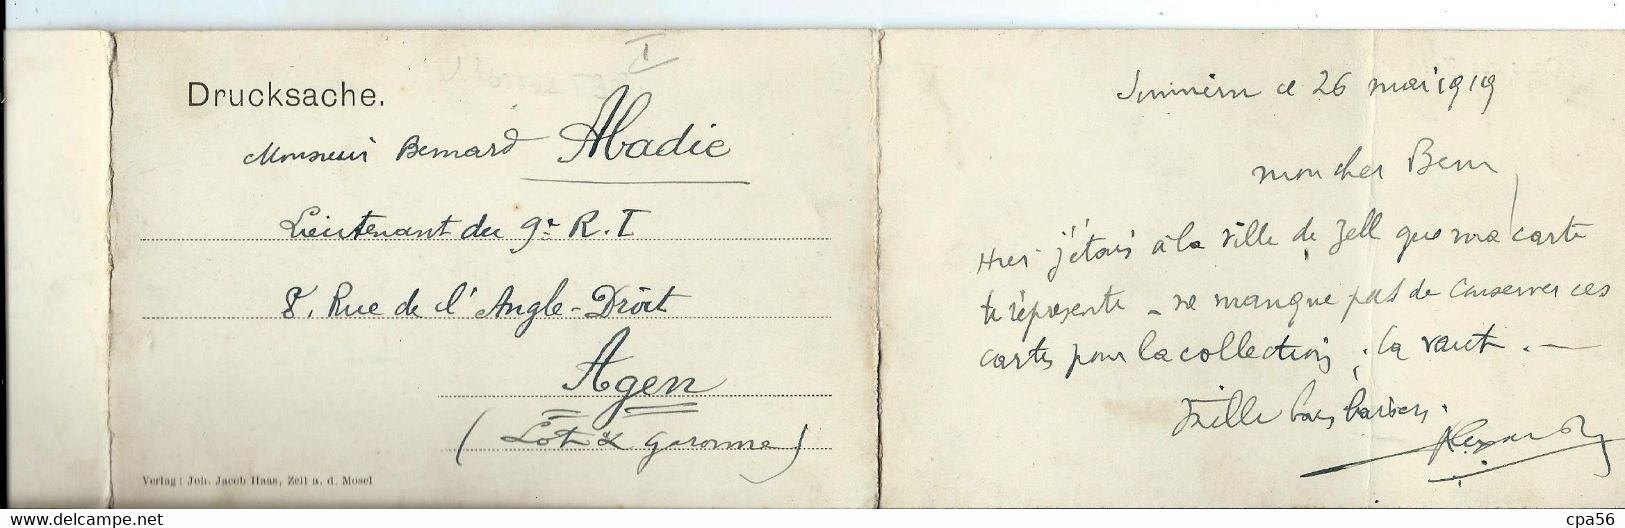 Drucksache.
I
Monsieur Bernard Abadie
Lieutenant du 9e R. I
8, Rue de l'Angle-Droit
Agen
(Lot & Garonne)
Verlag: Joh. Jacob Haas, Zell a. d. Mosel
ce 26 mai 1919
mon cher Bern
Hier j'étais à la ville de Zell que ma carte
te représente - ne manque pas de conserver ces
cartes pour la collection, ça vaut. —
Mille bons baisers.
cpa56